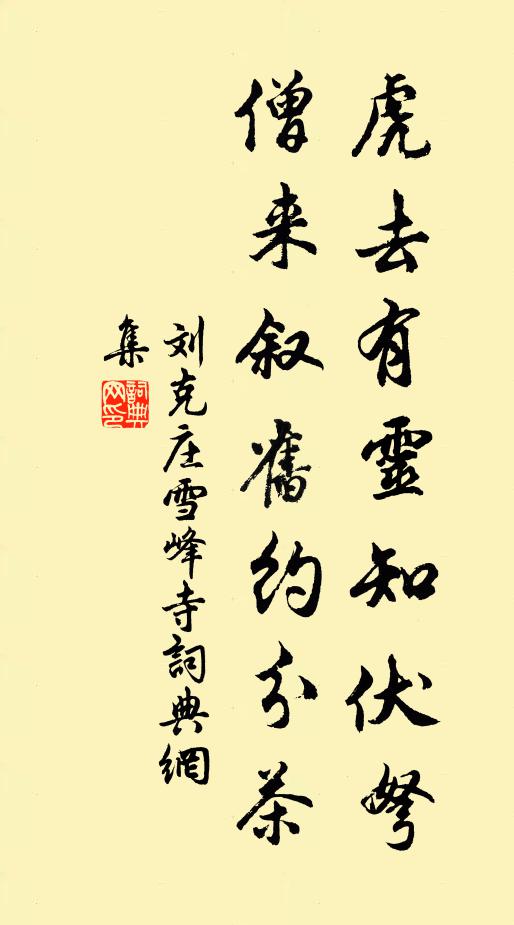 虎去有靈知伏弩
僧来叙舊約分茶
刘克庄雪峰寺詞典網
集
詞典網印